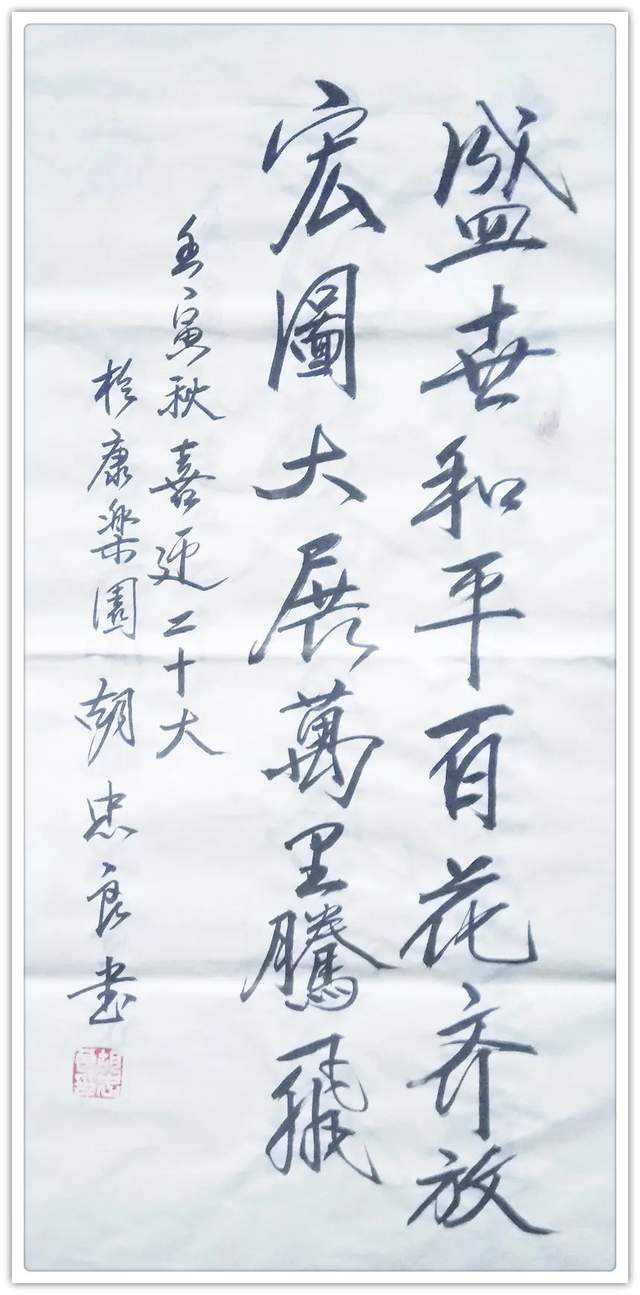 盛世和平百花齐放
宏圖大展萬里騰飛
壬寅秋喜迎二十大
於康樂園胡忠良书